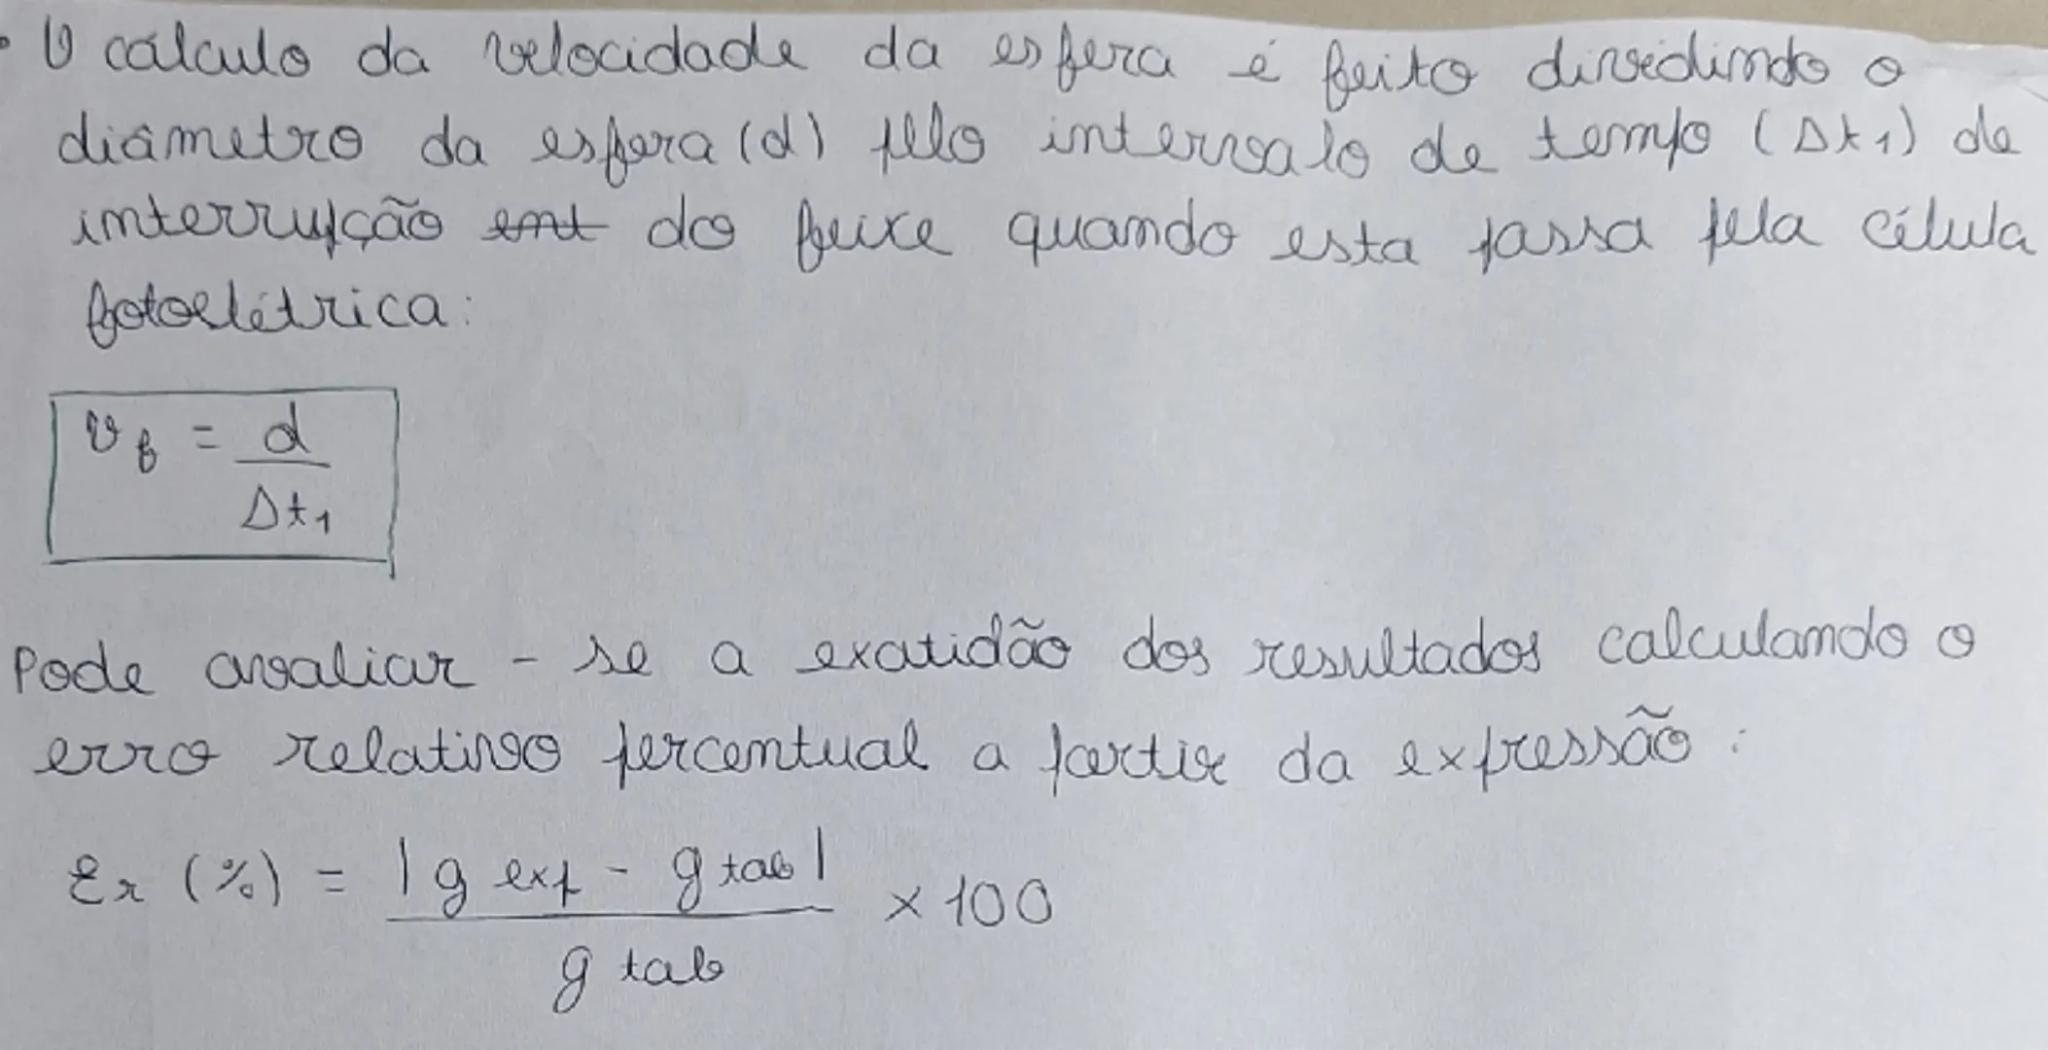 • O cálculo da velocidade da esfera é feito dividindo o
diâmetro da esfera (d) pelo intervalo de tempo (Δt1) de
interrupção ent do feixe quando esta passa pela célula
fotoelétrica:
vf = d / Δt1
Pode avaliar-se a exatidão dos resultados calculando o
erro relativo percentual a partir da expressão:
Er (%) = |g exp - g tab| / g tab × 100